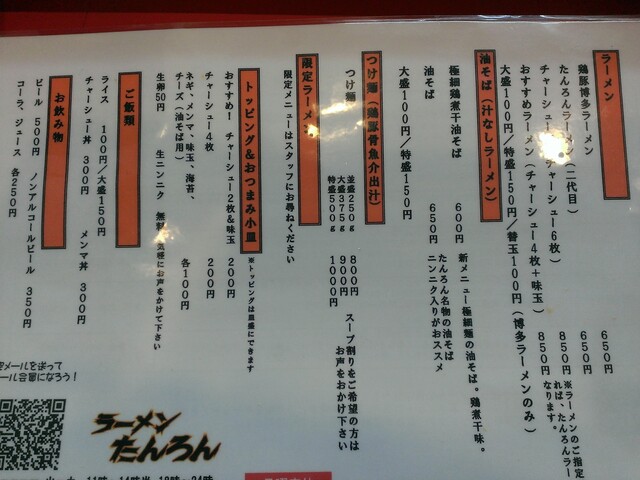 ラーメン
鶏豚博多ラーメン 650円
たんろんラーメン(二代目) 650円
チャーシューメン(チャーシュー6枚) 850円
おすすめラーメン(チャーシュー4枚+味玉) 850円
※ラーメンのご指定
れば、たんろんラー
なります。
大盛100円/特盛150円/替玉100円(博多ラーメンのみ)
油そば(汁なしラーメン)
極細鶏煮干油そば 600円 新メニュー極細麺の油そば。鶏煮干味。
油そば 650円 たんろん名物の油そば
ニンニク入りがおススメ
大盛100円/特盛150円
つけ麺(鶏豚骨魚介出汁)
つけ麺 並盛250g 800円
大盛375g 900円
特盛500g 1000円
スープ割りをご希望の方は
お声をおかけ下さい
限定ラーメン
限定メニューはスタッフにお尋ねください
トッピング&おつまみ小皿 ※トッピングは皿盛にできます
おすすめ! チャーシュー2枚&味玉 200円
チャーシュー4枚 200円
ネギ、メンマ、味玉、海苔、
チーズ(油そば用) 各100円
生卵50円 生ニンニク 無料 気軽にお声をかけて下さい
ご飯類
ライス 100円/大盛150円
チャーシュー丼 300円 メンマ丼 300円
お飲み物
ビール 500円 ノンアルコールビール 350円
コーラ、ジュース 各250円
ラーメン
たんろん